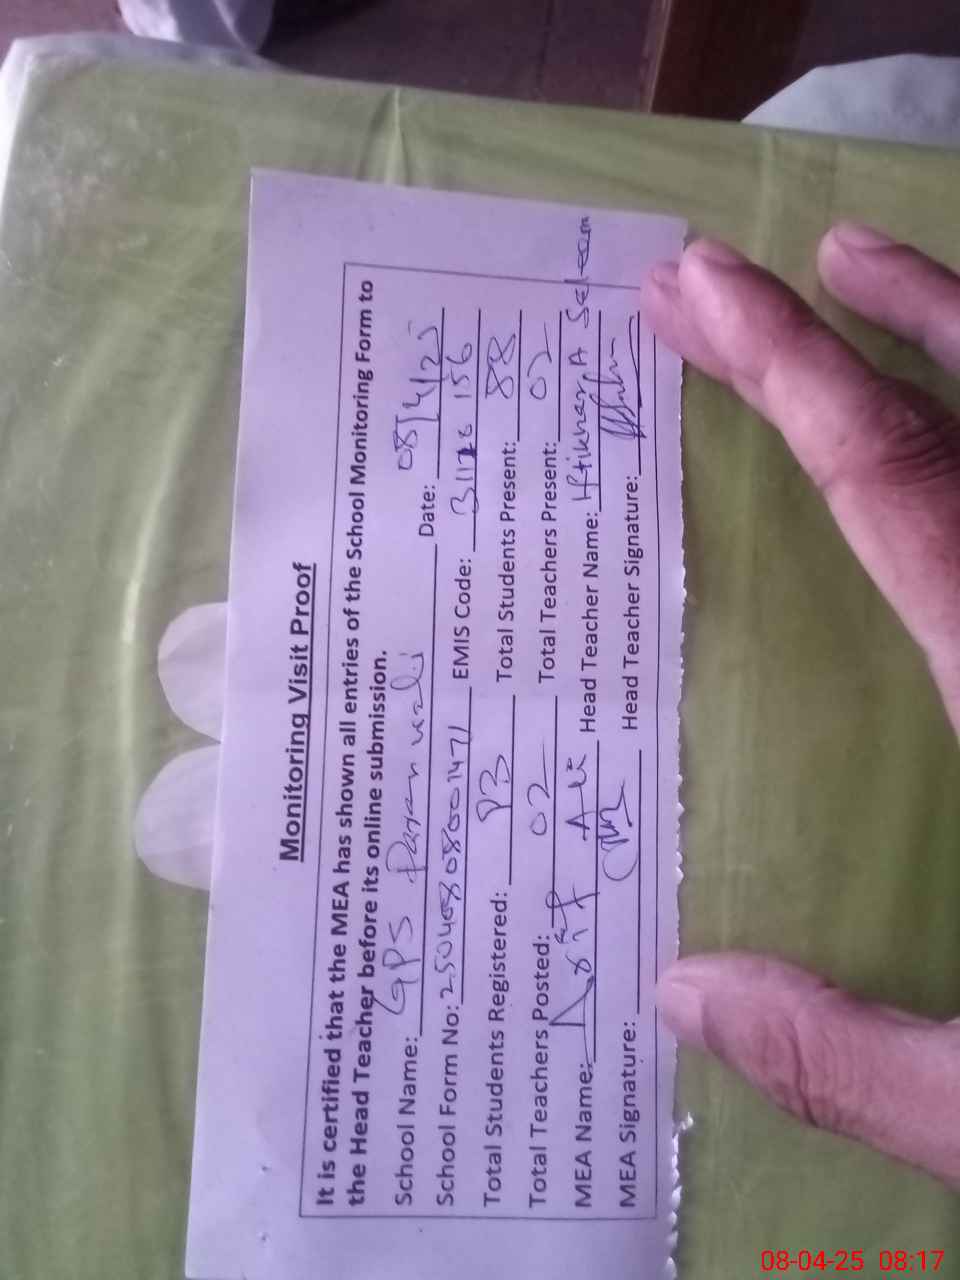 Monitoring Visit Proof
It is certified that the MEA has shown all entries of the School Monitoring Form to
the Head Teacher before its online submission.
School Name: GPS Date: 08/4/25
School Form No: EMIS Code:
Total Students Registered: Total Students Present: 88
Total Teachers Posted: 02 Total Teachers Present: 02
MEA Name: Asif Ali Head Teacher Name: Iftikhar A Saleem
MEA Signature: Head Teacher Signature:
08-04-25 08:17